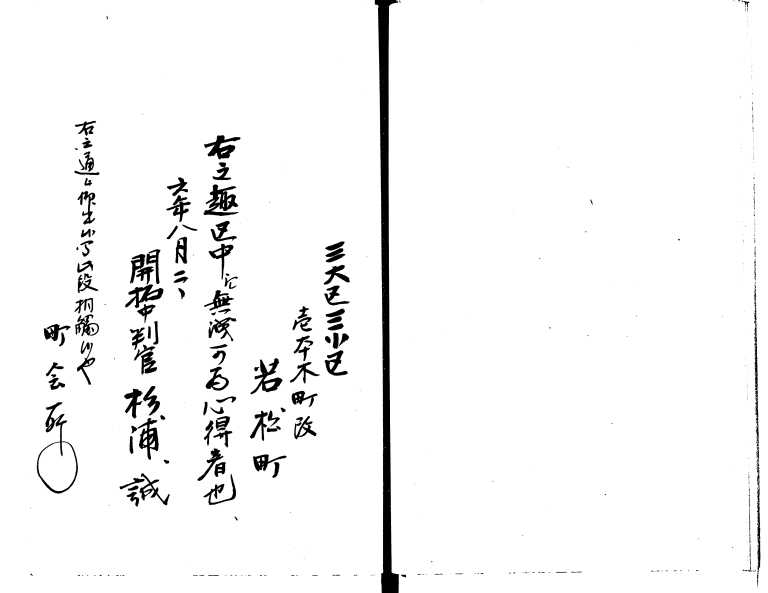 三大区三小区
壱本木町改
若松町
右之趣区中に無洩可為心得者也
六年八月二
開拓中判官杉浦誠
右之通被仰出候間此段相触候也
町会所